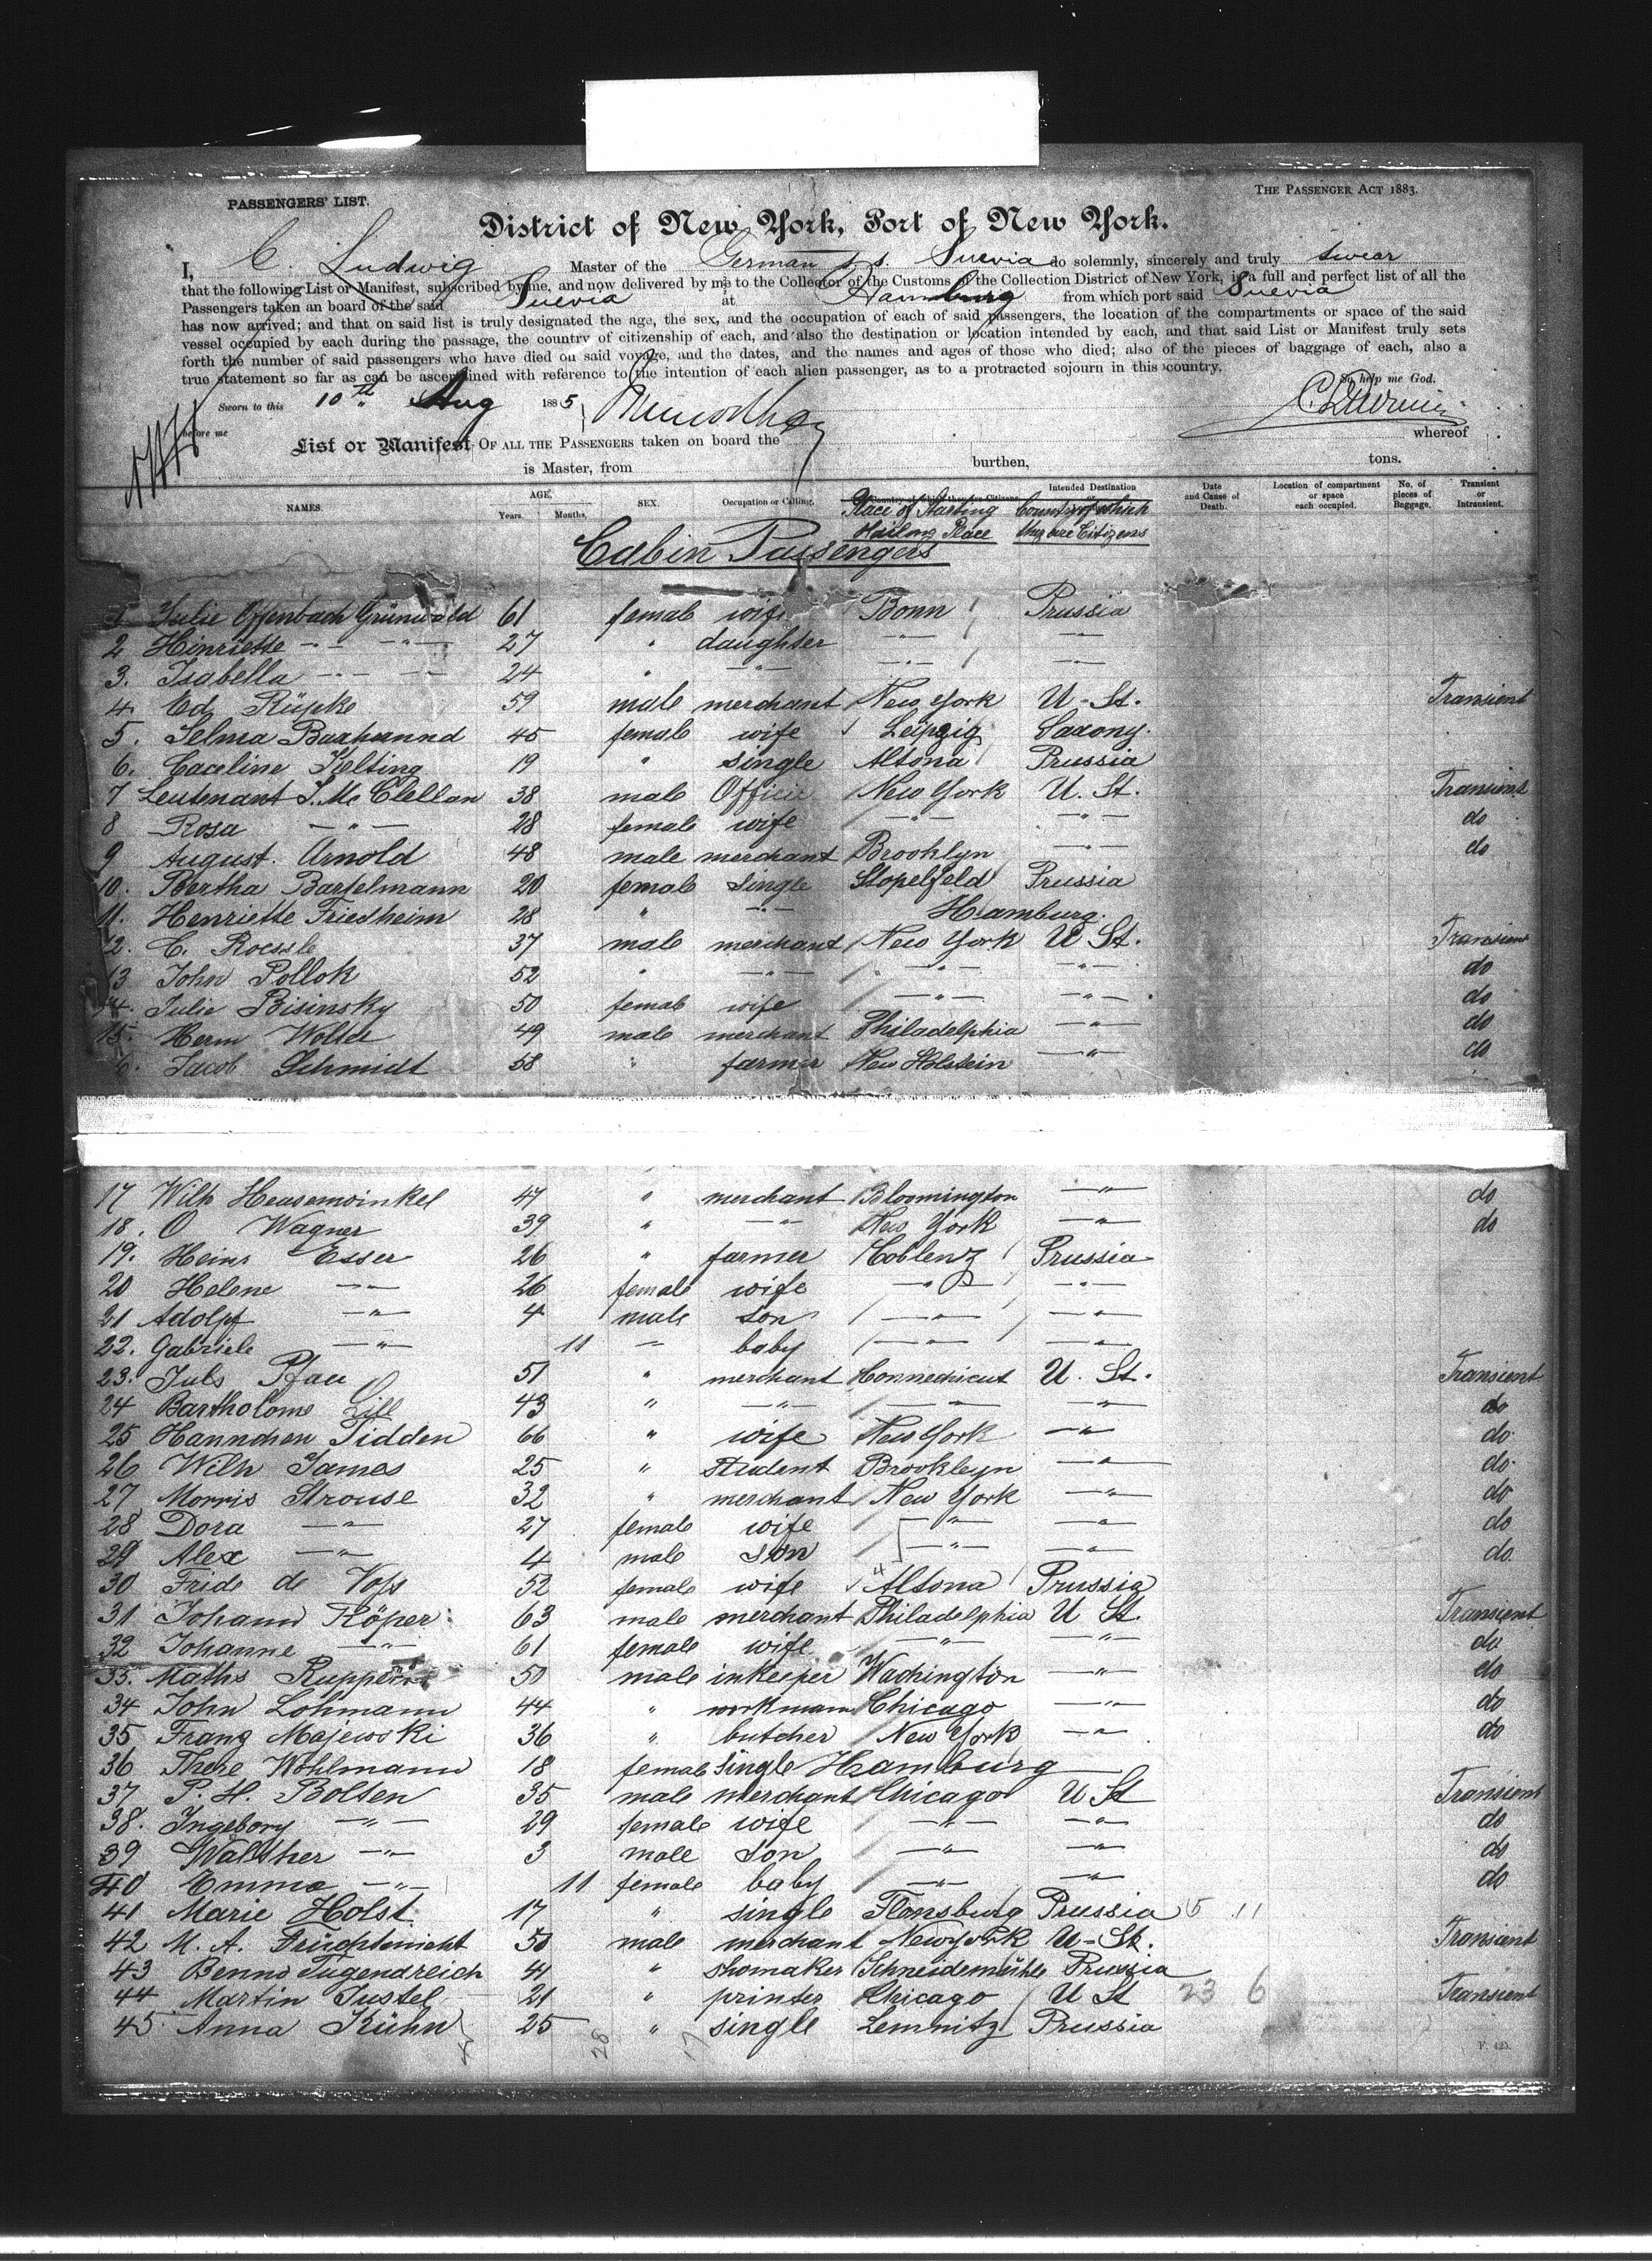 PASSENGERS' LIST.
THE PASSENGER ACT 1883.
District of New York, Port of New York.
I, C. Ludwig Master of the German S. S. Suevia do solemnly, sincerely and truly swear
that the following List or Manifest, subscribed by me, and now delivered by me to the Collector of the Customs of the Collection District of New York, is a full and perfect list of all the
Passengers taken on board of the said Suevia at Hamburg from which port said Suevia
has now arrived; and that on said list is truly designated the age, the sex, and the occupation of each of said passengers, the location of the compartments or space of the said
vessel occupied by each during the passage, the country of citizenship of each, and also the destination or location intended by each, and that said List or Manifest truly sets
forth the number of said passengers who have died on said voyage, and the dates, and the names and ages of those who died; also of the pieces of baggage of each, also a
true statement so far as can be ascertained with reference to the intention of each alien passenger, as to a protracted sojourn in this country.
So help me God.
Sworn to this 10th Aug 1885
before me
List or Manifest OF ALL THE PASSENGERS taken on board the whereof
is Master, from burthen, tons.
NAMES. AGE. Years. Months. SEX. Occupation or Calling. Place of Starting Hailing Place Intended Destination Country of which they are Citizens Date and Cause of Death. Location of compartment or space each occupied. No. of pieces of Baggage. Transient or Intransient.
Cabin Passengers
1 Julie Offenbach Grünwald 61 female wife Bonn Prussia
2 Hinriette -"- -"- 27 " daughter -"- -"-
3. Isabella -"- -"- 24 " -"- -"- -"-
4 Ed. Rüpke 59 male merchant New York U-St. Transient
5. Selma 45 female wife Leipzig Saxony.
6. Caceline Kelting 19 " single Altona Prussia
7 Leutenant S. Mc Clellan 38 male Officir New York U. St. Transient
8 Rosa -"- 28 female wife -"- -"- do
9 August. Arnold 48 male merchant Brooklyn -"- do
10. Bertha Bartelmann 20 female single Stopelfeld Prussia
11. Henriette Friedheim 28 " -"- Hamburg.
12. C. Roessle 37 male merchant New York U St. Transient
13 John Pollok 52 " -"- -"- -"- do
14. Julie Bisinsky 50 female wife -"- -"- do
15. Herm Wolter 49 male merchant Philadelphia -"- do
6. Jacob Schmidt 58 " farmer New Holstein -"- do
17 Wilh Heusemoinkel 47 " merchant Bloomington -"- do
18. O Wagner 39 " -"- New York -"- do
19. Heinr Esser 26 " farmer Coblenz Prussia
20 Helene -"- 26 female wife -"- -"-
21 Adolf -"- 4 male son -"- -"-
22. Gabriele -"- 11 - baby -"- -"-
23. Juls Pfau 51 " merchant Connechicut U. St. Transient
24 Bartholome Lill 43 " -"- -"- -"- do
25 Hannchen Tidden 66 " wife New York -"- do
26 Wilh James 25 " student Brookleyn -"- do
27 Morris Strouse 32 " merchant New York -"- do
28 Dora -"- 27 female wife -"- -"- do
29 Alex -"- 4 male son -"- -"- do
30 Fride de Voss 52 female wife Altona Prussia
31 Johann Röper 63 male merchant Philadelphia U St. Transient
32 Johanne -"- 61 female wife -"- -"- do
33. Maths 50 male inkeeper Wachington -"- do
34 John Lohmann 44 " workmann Chicago -"- do
35 Franz Majewski 36 " butcher New York -"- do
36 There Wohlmann 18 female single Hamburg
37 P. H. Bolten 35 male merchant Chicago U St Transient
38. Ingeborg -"- 29 female wife -"- -"- do
39 Walther -"- 3 male son -"- -"- do
40 Emma -"- 11 female baby -"- -"- do
41 Marie Holst 17 " single Flensburg Prussia 5 11
42 M. A. Früchtenicht 50 male merchant Newyork U-St. Transient
43 Benno Tugendreich 41 " shomaker Schneidemühle Prussia
44 Martin Justel 21 " printer Chicago U St 23 6 Transient
45 Anna Kühn 25 " single Lemnitz Prussia
28 17
F. 425.